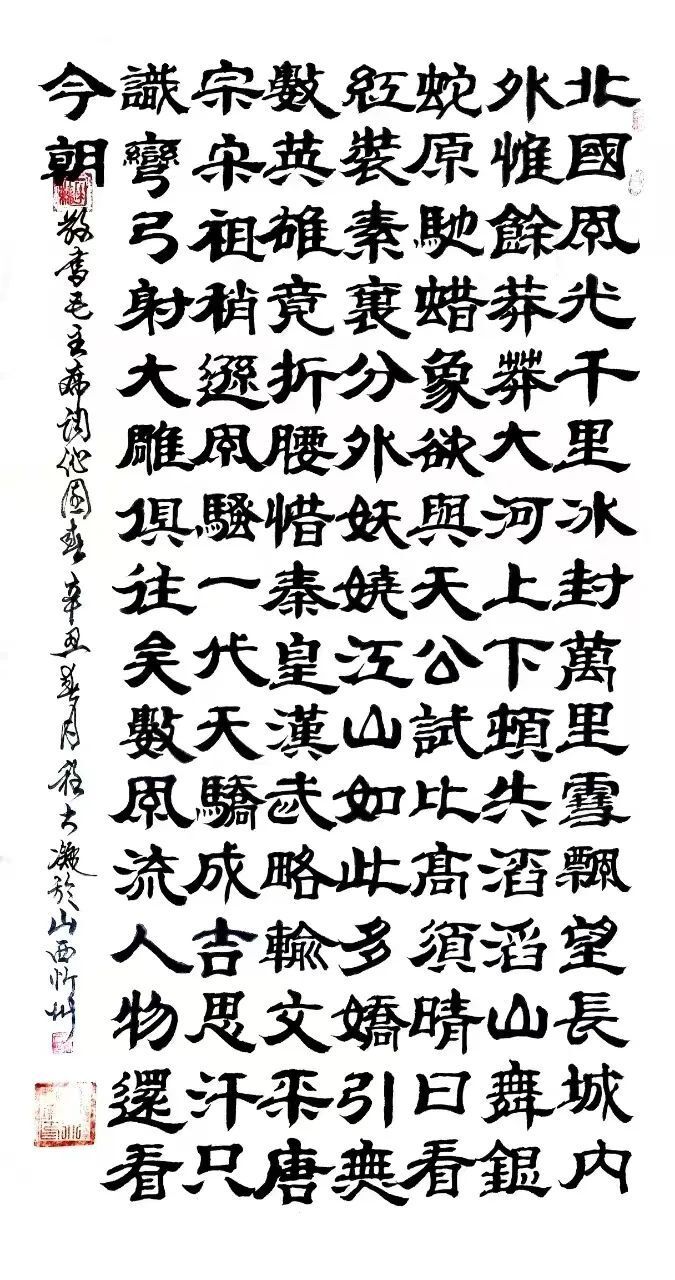 北國風光千里冰封萬里雪飄望長城內
外惟餘莽莽大河上下頓失滔滔山舞銀
蛇原馳蜡象欲與天公試比高須晴日看
紅裝素裹分外妖嬈江山如此多嬌引無
數英雄竞折腰惜秦皇漢武略輸文采唐
宗宋祖稍遜風騷一代天驕成吉思汗只
識彎弓射大雕俱往矣數風流人物還看
今朝
敬書毛主席詞沁園春辛丑春月程大凝於山西忻州